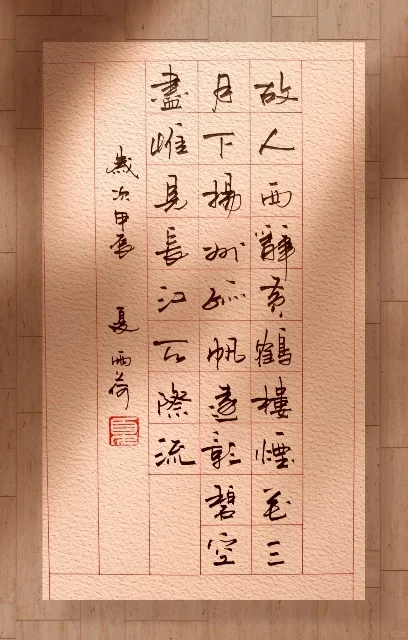 故人西辭黃鶴樓煙花三
月下揚州孤帆遠影碧空
盡唯見長江天際流
歲次甲辰 夏雨荷